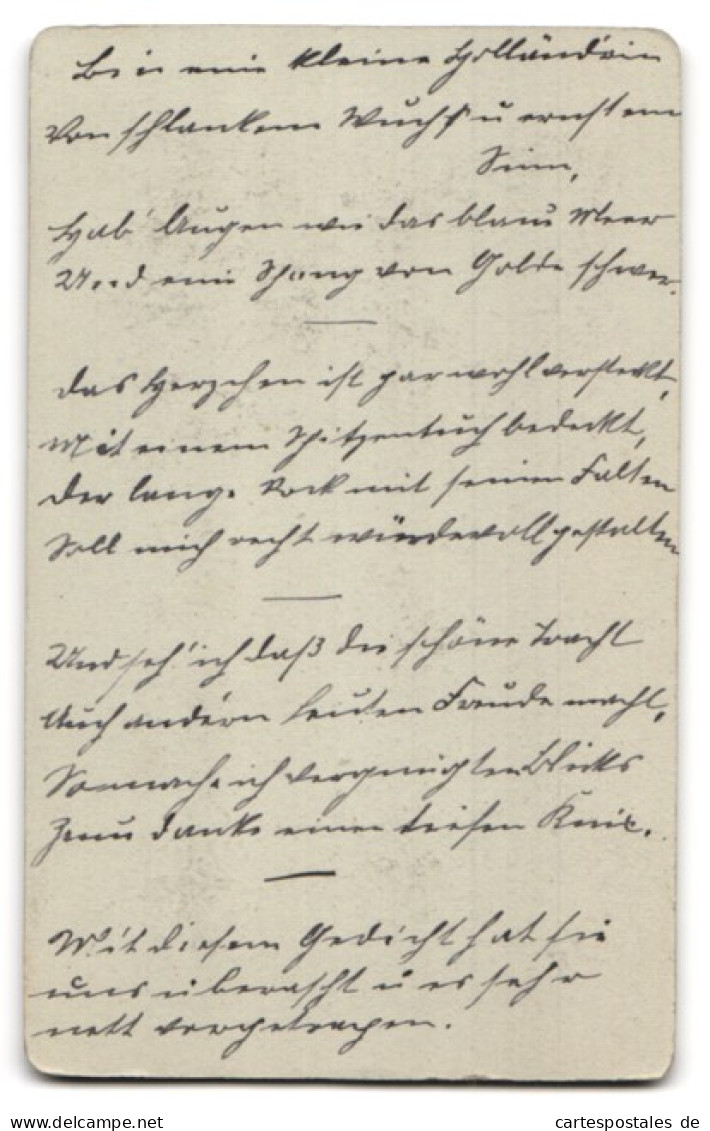 Bin eine kleine Holländrin
Von schlankem Wuchs u ernstem
Sinn,
Hab' Augen wie das blaue Meer
Und eine Spang von Golde schwer.
Das Herzchen ist gar wohl versteckt,
Mit einem Spitzentuch bedeckt,
Der lange Rock mit seinen Falten
Soll mich recht würdevoll gestalten
Und seh' ich daß die schöne Tracht
Auch andern Leuten Freude macht,
So mach ich vergnügten Blicks
Zum danke einen tiefen Knix.
Mit diesem Gedicht hat sie
uns überascht u es sehr
nett vorgetragen.
www.delcampe.net
cartespostales de